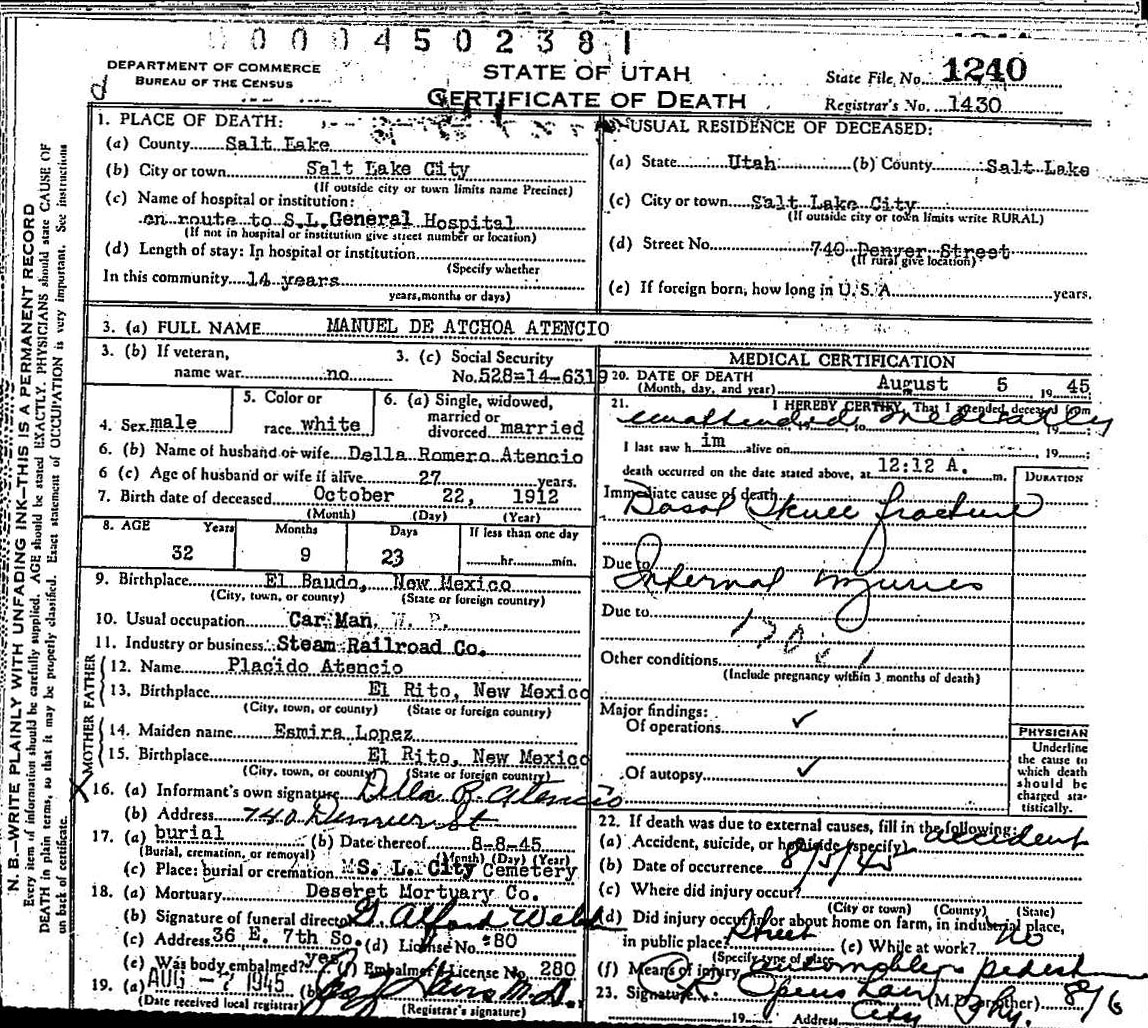 00004502381
DEPARTMENT OF COMMERCE
BUREAU OF THE CENSUS
STATE OF UTAH
CERTIFICATE OF DEATH
State File No. 1240
Registrar's No. 1430
d
N. B.—WRITE PLAINLY WITH UNFADING INK—THIS IS A PERMANENT RECORD
Every item of information should be carefully supplied. AGE should be stated EXACTLY. PHYSICIANS should state CAUSE OF
DEATH in plain terms, so that it may be properly classified. Exact statement of OCCUPATION is very important. See instructions
on back of certificate.
1. PLACE OF DEATH:
(a) County Salt Lake
(b) City or town Salt Lake City
(If outside city or town limits name Precinct)
(c) Name of hospital or institution:
en route to S.L. General Hospital
(If not in hospital or institution give street number or location)
(d) Length of stay: In hospital or institution
(Specify whether
In this community 14 years
years, months or days)
USUAL RESIDENCE OF DECEASED:
(a) State Utah (b) County Salt Lake
(c) City or town Salt Lake City
(If outside city or town limits write RURAL)
(d) Street No. 740 Denver Street
(If rural give location)
(e) If foreign born, how long in U. S. A. years.
3. (a) FULL NAME MANUEL DE ATCHOA ATENCIO
3. (b) If veteran,
name war no
3. (c) Social Security
No. 528-14-6319
4. Sex male
5. Color or
race white
6. (a) Single, widowed,
married or
divorced married
6. (b) Name of husband or wife Della Romero Atencio
6 (c) Age of husband or wife if alive 27 years.
7. Birth date of deceased October 22, 1912
(Month) (Day) (Year)
8. AGE Years Months Days If less than one day
32 9 23 hr. min.
9. Birthplace El Baudo, New Mexico
(City, town, or county) (State or foreign country)
10. Usual occupation Car Man
11. Industry or business Steam Railroad Co.
FATHER
12. Name Placido Atencio
13. Birthplace El Rito, New Mexico
(City, town, or county) (State or foreign country)
MOTHER
14. Maiden name Esmira Lopez
15. Birthplace El Rito, New Mexico
(City, town, or county) (State or foreign country)
X 16. (a) Informant's own signature Della R. Atencio
(b) Address 740 Denver St
17. (a) burial (b) Date thereof 8-8-45
(Burial, cremation, or removal) (Month) (Day) (Year)
(c) Place: burial or cremation S. L. City Cemetery
18. (a) Mortuary Deseret Mortuary Co.
(b) Signature of funeral director
(c) Address 36 E. 7th So. (d) License No. 80
(e) Was body embalmed? yes (f) Embalmer's License No. 280
19. (a) AUG - 7 1945 (b)
(Date received local registrar) (Registrar's signature)
MEDICAL CERTIFICATION
20. DATE OF DEATH August 5 1945
(Month, day, and year)
21. I HEREBY CERTIFY, That I attended deceased from
unattended medically 19
I last saw him alive on 19
death occurred on the date stated above, at 12:12 A. m.
DURATION
Immediate cause of death
Basal Skull fracture
Due to
Internal injuries
Due to
Other conditions
(Include pregnancy within 3 months of death)
Major findings:
Of operations ✓
Of autopsy ✓
PHYSICIAN
Underline
the cause to
which death
should be
charged sta-
tistically.
22. If death was due to external causes, fill in the following:
(a) Accident, suicide, or homicide (specify) accident
(b) Date of occurrence 8/5/45
(c) Where did injury occur?
(City or town) (County) (State)
(d) Did injury occur in or about home on farm, in industrial place,
in public place? Street (e) While at work? no
(Specify type of place)
(f) Means of injury automobile
23. Signature (M.D. or other) 8/6
19 Address City